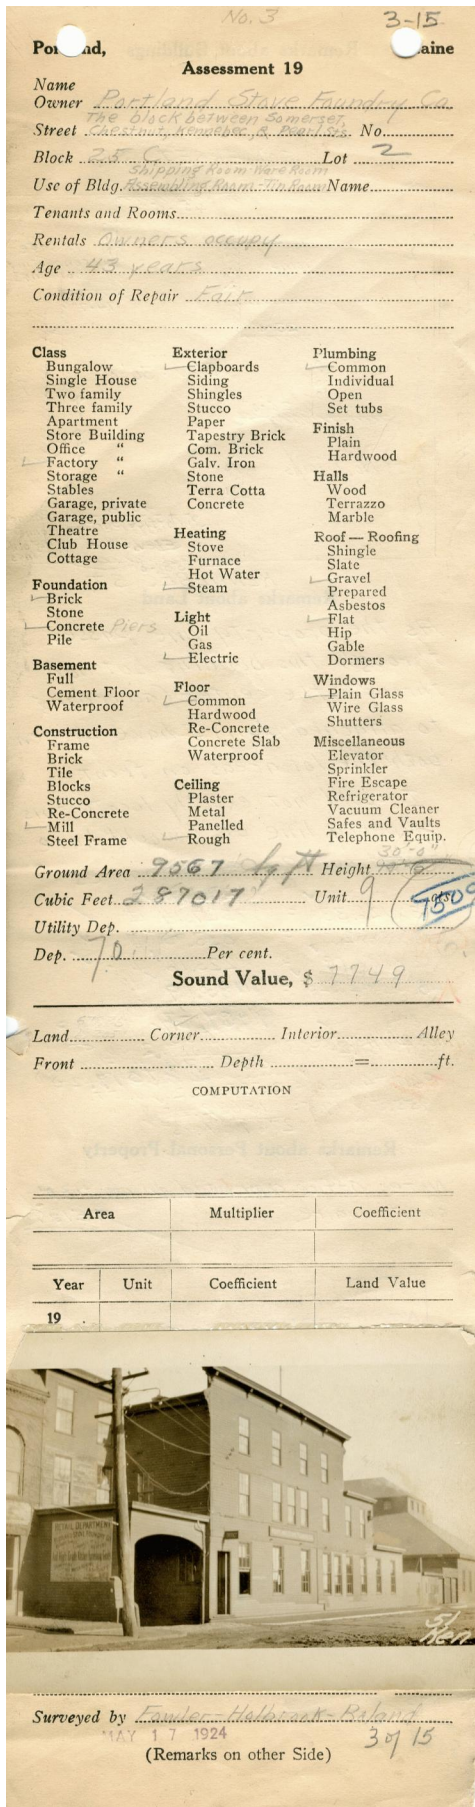 No. 3
3-15
Po nd, aine
Assessment 19
Name
Owner Portland Stove Foundry Co
The block between Somerset,
Street Chestnut, Kennebec, & Pearl Sts. No.
Block 25 C Lot 2
Shipping Room Ware Room
Use of Bldg. Assembling Room - Tin Room Name
Tenants and Rooms
Rentals Owners occupy
Age 43 years
Condition of Repair Fair
Class
Bungalow
Single House
Two family
Three family
Apartment
Store Building
Office "
Factory "
Storage "
Stables
Garage, private
Garage, public
Theatre
Club House
Cottage
Foundation
Brick
Stone
Concrete Piers
Pile
Basement
Full
Cement Floor
Waterproof
Construction
Frame
Brick
Tile
Blocks
Stucco
Re-Concrete
Mill
Steel Frame
Exterior
Clapboards
Siding
Shingles
Stucco
Paper
Tapestry Brick
Com. Brick
Galv. Iron
Stone
Terra Cotta
Concrete
Heating
Stove
Furnace
Hot Water
Steam
Light
Oil
Gas
Electric
Floor
Common
Hardwood
Re-Concrete
Concrete Slab
Waterproof
Ceiling
Plaster
Metal
Panelled
Rough
Plumbing
Common
Individual
Open
Set tubs
Finish
Plain
Hardwood
Halls
Wood
Terrazzo
Marble
Roof — Roofing
Shingle
Slate
Gravel
Prepared
Asbestos
Flat
Hip
Gable
Dormers
Windows
Plain Glass
Wire Glass
Shutters
Miscellaneous
Elevator
Sprinkler
Fire Escape
Refrigerator
Vacuum Cleaner
Safes and Vaults
Telephone Equip.
30'-0"
Ground Area 9567 sq ft Height
Cubic Feet 287017 Unit 9 cts. 7500
Utility Dep.
Dep. 70 Per cent.
Sound Value, $ 7749
Land Corner Interior Alley
Front Depth = ft.
COMPUTATION
Area Multiplier Coefficient
Year Unit Coefficient Land Value
19
RETAIL DEPARTMENT
51
Ken
Surveyed by Fowler-Holbrook-Roland
MAY 17 1924
3 of 15
(Remarks on other Side)